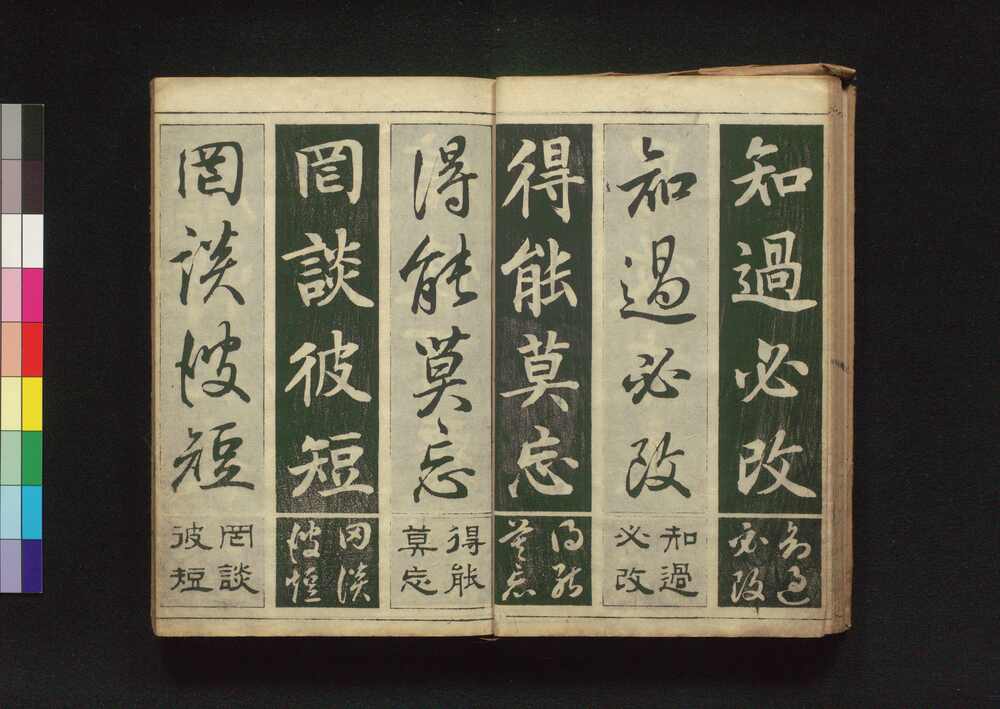 知過必改
知過必改
知過
必改
知過
必改
得能莫忘
得能
莫忘
得能莫忘
得能
莫忘
罔談彼短
罔談
彼短
罔談彼短
罔談
彼短